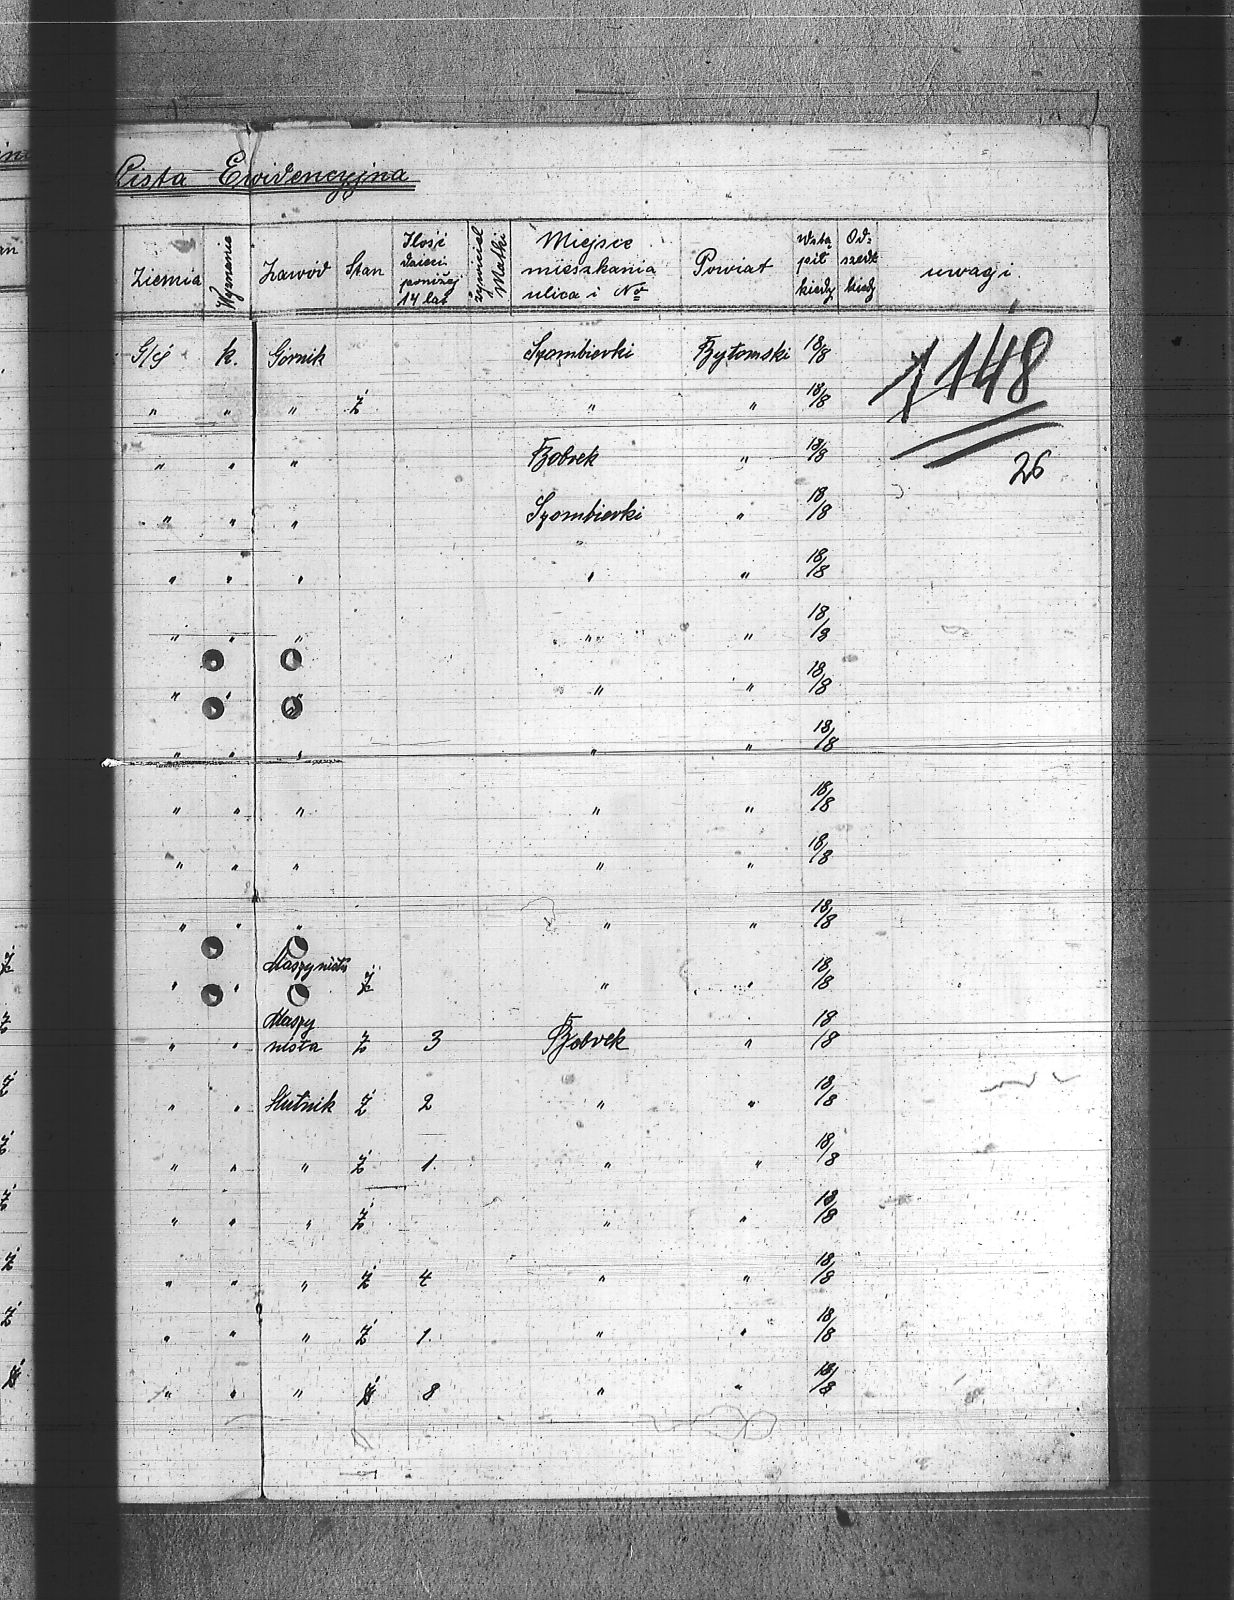 Lista Ewidencyjna
Ziemia Wyznanie Zawód Stan Ilość dzieci poniżej 14 lat żywiciel Matki Miejsce mieszkania ulica i № Powiat Wstąpił kiedy Odszedł kiedy uwagi
G/Śl k. Górnik Szombierki Bytomski 18/8 1148
" " " Ż " " 18/8
" " " Bobrek " 18/8 26
" " " Szombierki " 18/8
" " " " " 18/8
" " " " " 18/8
" " " " " 18/8
" " " " " 18/8
" " " " " 18/8
" " " " " 18/8
" " " " " 18/8
" " Maszynista Ż " " 18/8
" " Maszynista Ż 3 Bobrek " 18/8
" " Hutnik Ż 2 " " 18/8
" " " Ż 1. " " 18/8
" " " Ż " " 18/8
" " " Ż 4 " " 18/8
" " " Ż 1. " " 18/8
" " " Ż 8 " " 18/8